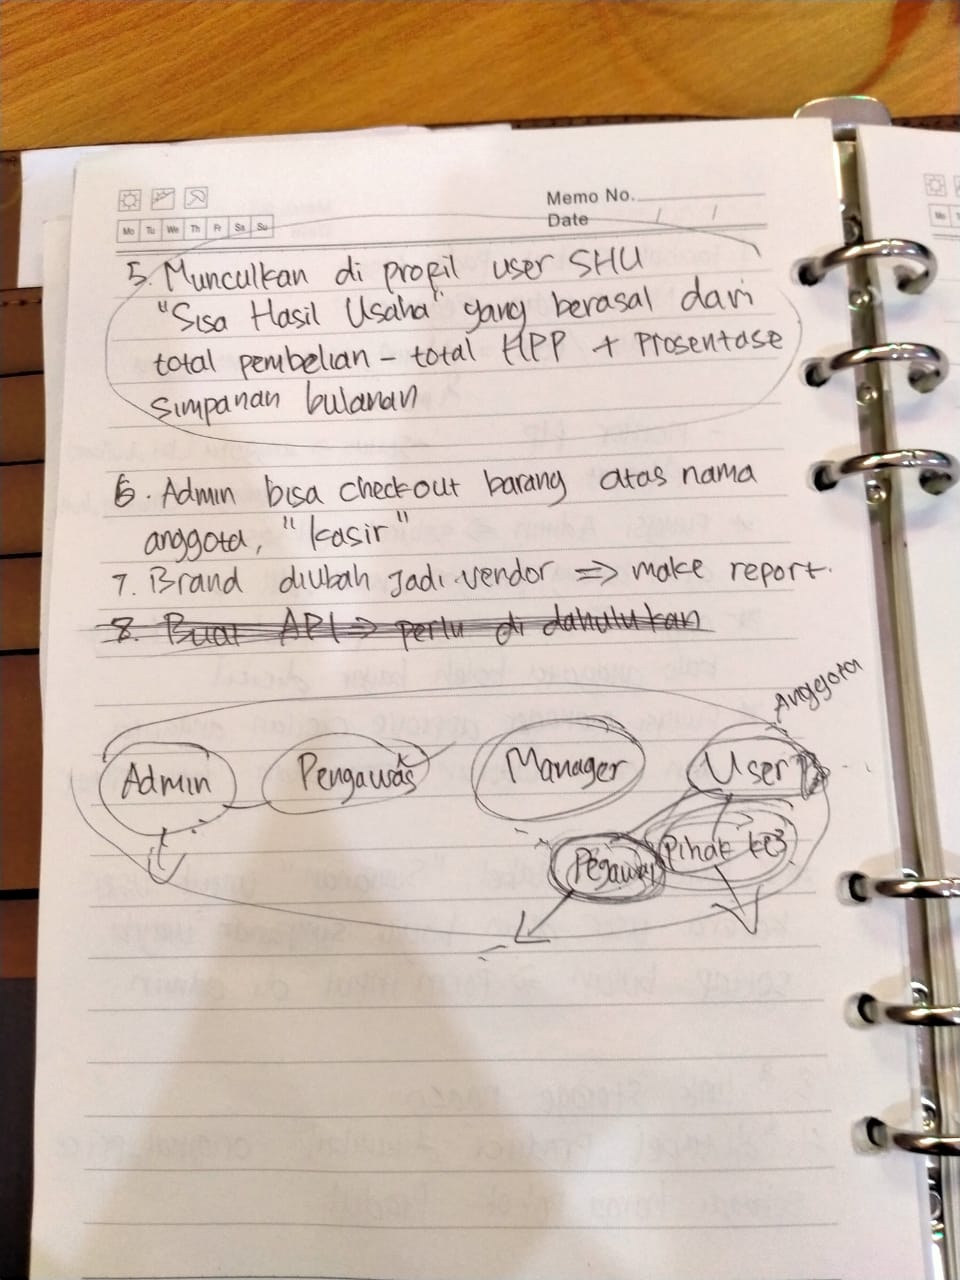 Memo No.
Date / /
Mo Tu We Th Fr Sa Su
5. Munculkan di profil user SHU
"Sisa Hasil Usaha" yang berasal dari
total pembelian - total HPP + Prosentase
simpanan bulanan
6. Admin bisa checkout barang atas nama
anggota, "kasir"
7. Brand diubah jadi vendor => make report.
8. Buat API => perlu di dahulukan
Anggota
Admin Pengawas Manager User
Pegawai Pihak ke3